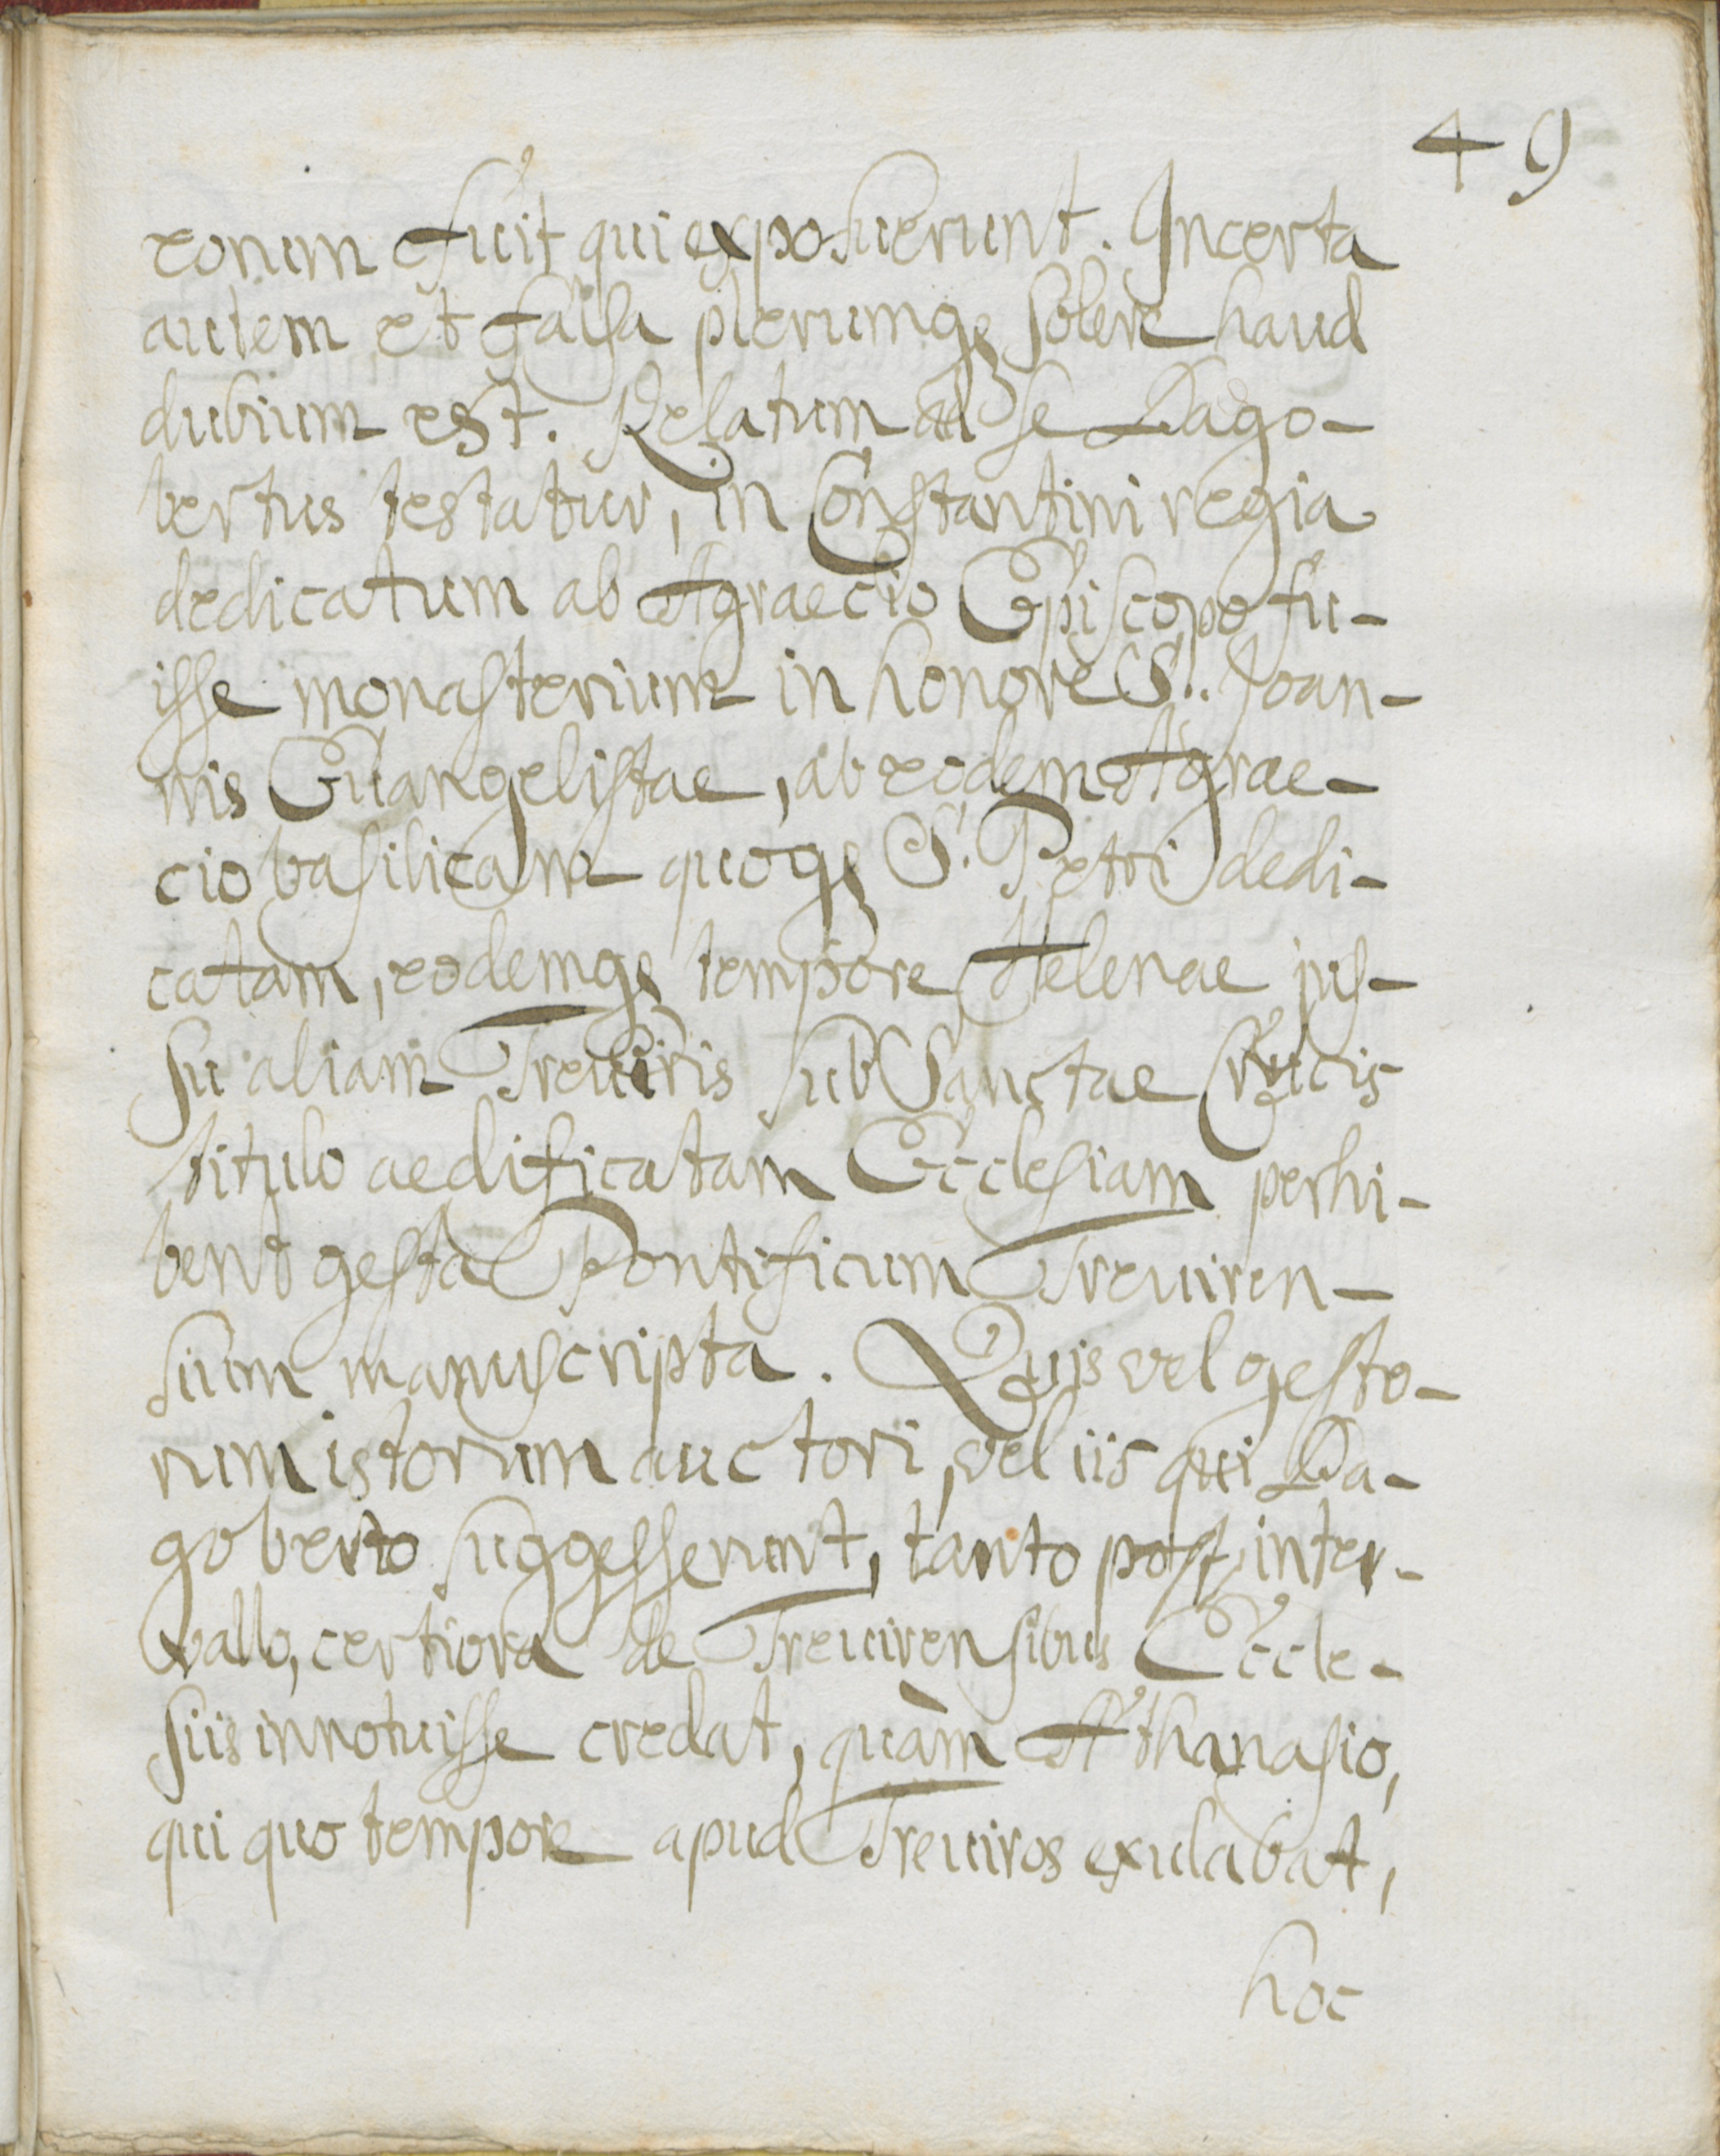 49
eorum fuit qui exposuerunt. Incerta
autem et falsa plerumq; solere haud
dubium est. Relatum ad se Dago-
bertus testatur, in Constantini regia
dedicatum ab Agraecio Episcopo fu-
isse monasterium in honore S. Joan-
nis Euangelistae, ab eodem Agrae-
cio basilicam quoq; S. Petri dedi-
catam, eodemq; tempore Helenae jus-
su aliam Treuiris sub Sanctae Crucis
titulo aedificatam Ecclesiam perhi-
bent gesta Pontificum Treuiren-
sium manuscripta. Quis vel gesto-
rum istorum auctori, vel iis qui Da-
goberto suggesserunt, tanto post inter-
vallo, certiora de Treuirensibus Eccle-
siis innotuisse credat, quàm Athanasio,
qui quo tempore apud Treuiros exulabat,
hoc